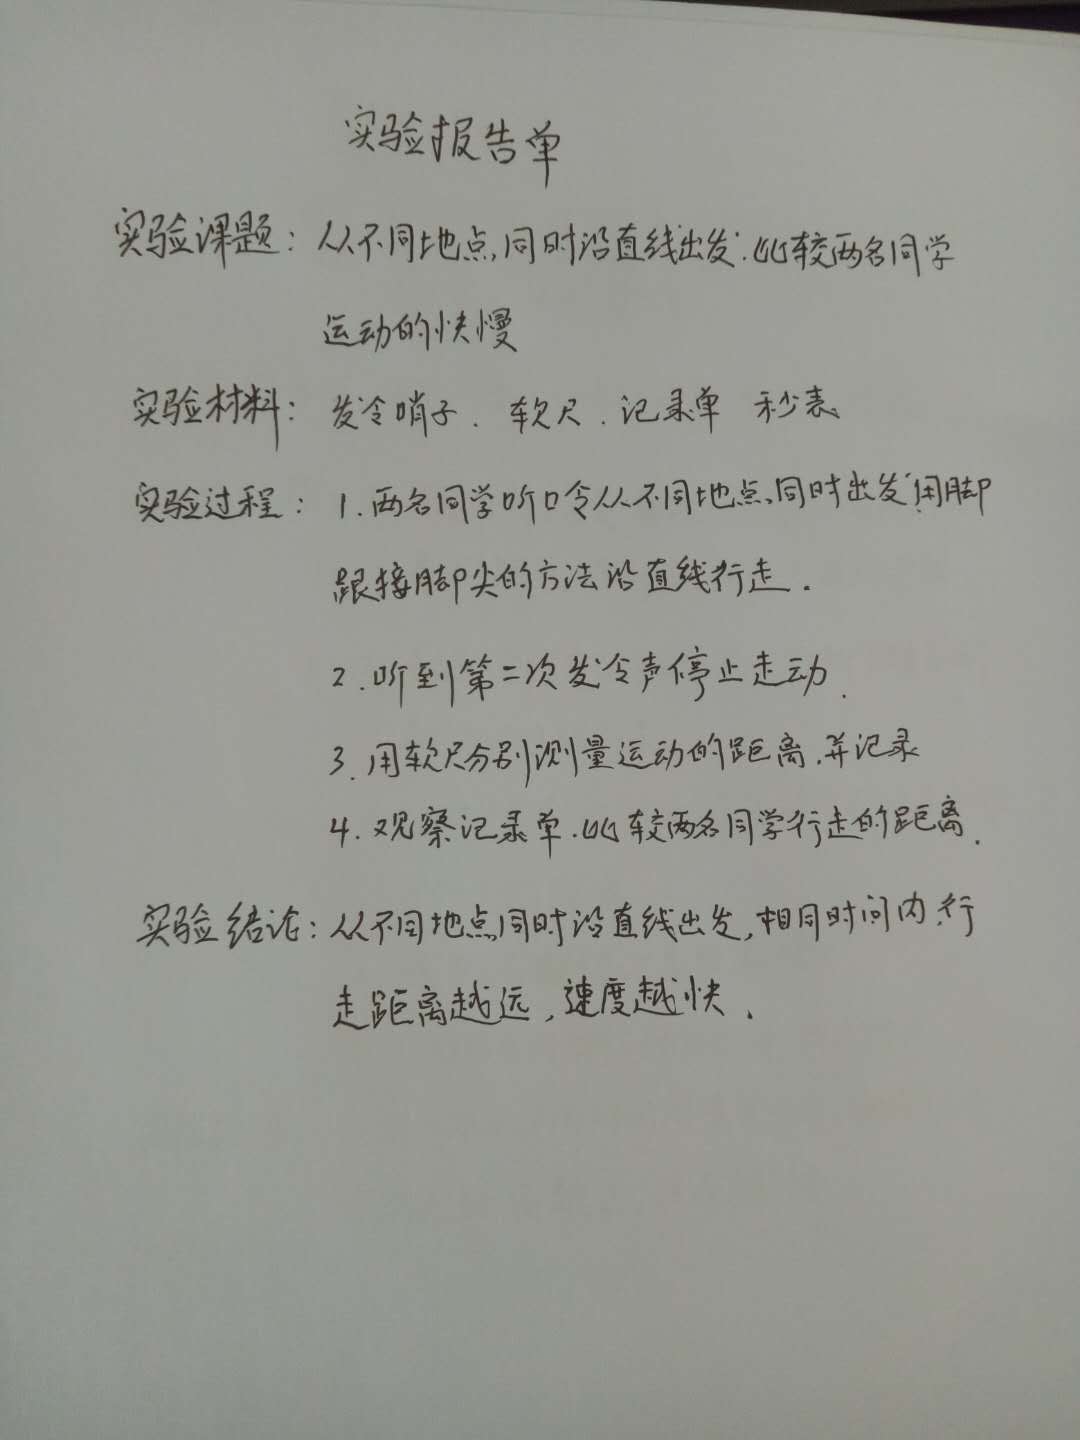 实验报告单
实验课题：从不同地点,同时沿直线出发.比较两名同学
运动的快慢
实验材料：发令哨子.软尺.记录单 秒表
实验过程：1.两名同学听口令从不同地点,同时出发,用脚
跟接脚尖的方法沿直线行走.
2.听到第二次发令声停止走动.
3.用软尺分别测量运动的距离.并记录
4.观察记录单.比较两名同学行走的距离.
实验结论：从不同地点,同时沿直线出发,相同时间内,行
走距离越远,速度越快.